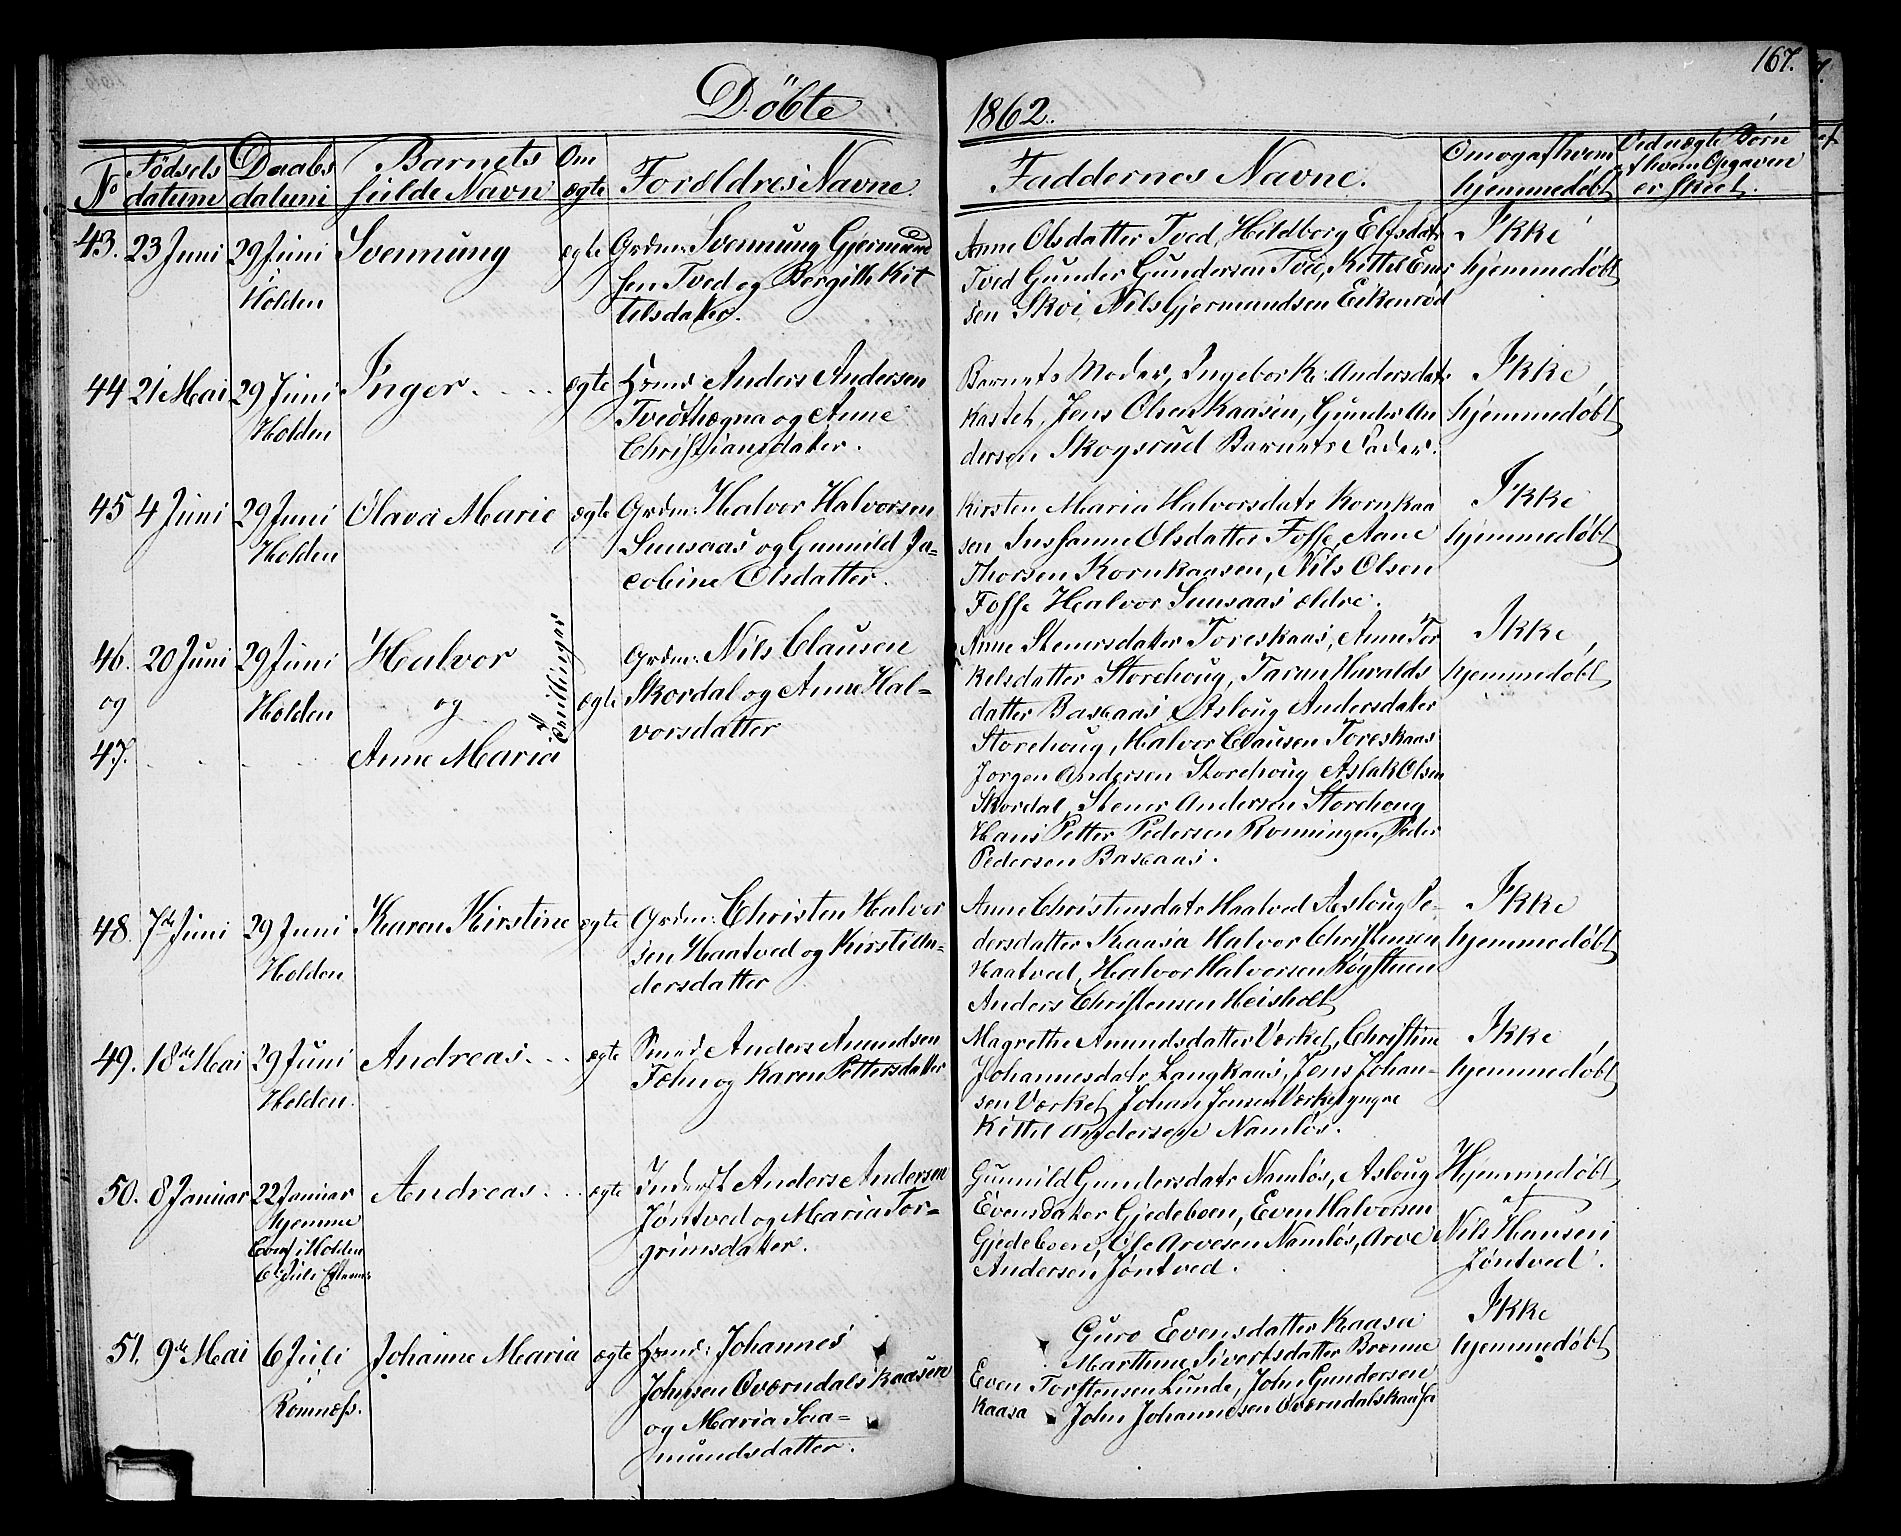 167.
Döbte
1862.
No
Födsels datum
Daabs datum
Barnets fulde Navn
Om ægte
Forældres Navne.
Faddernes Navne.
Om og af hvem hjemmedøbt
Ved uægte Børn af hvem Opgaven er skeet.
43. 23 Juni 29 Juni Svennung ægte Grdm: Svennung Gjermund
Holden sen Tved og Bergith Kit
telsdater.
Anne Olsdatter Tved, Hildborg Elfsdatr
Tved Gunder Gundersen Tved, Kittel
sen Skoi, Nils Gjermundsen Eikenrød
Ikke
hjemmedøbt
44 21 Mai 29 Juni Inger ægte Hsmd: Anders Andersen
Holden Tvedthægna og Anne
Christiansdater.
Barnets Moder, Ingebor K: Andersdatr
Kastet, Jens Olsen Kaasen, Gunder An
dersen Skogsrud Barnets Fader.
Ikke
hjemmedøbt
45 4 Juni 29 Juni Olava Marie ægte Grdm: Halvor Halvorsen
Holden Sunsaas og Gunnild Ja-
cobine Olsdatter.
Kirsten Maria Halvorsdatr Kornkaa
sen Susanne Olsdatter Fosse, Aane
Thorsen Kornkaasen, Nils Olsen
Fosse Halvor Sunsaas ældre.
Ikke
hjemmedøbt
46. 20 Juni 29 Juni Halvor Grdm: Nils Clausen
og Holden og Tvillinger ægte Skordal og Anne Hal-
vorsdatter
47. Anne Maria
Anne Stenersdater Toreskaas, Anne Tor
kelsdatter Storehoug, Taran Havalds
datter Baskaas Asloug Andersdater
Storehoug, Halvor Clausen Toreskaas
Jørgen Andersen Storehoug Aslak Olsen
Skordal, Stener Andersen Storehoug
Hans Petter Pedersen Rønningen, Peder
Pedersen Baskaas.
Ikke
hjemmedøbt
48. 7de Juni 29 Juni Karen Kirstine ægte Grdm: Christen Halvor
Holden sen Haatved og Kirsti An-
dersdatter
Anne Christensdatr Haatved Asloug Pe-
dersdatter Kaasa Halvor Christensen
Haatved, Halvor Halvorsen Røystuen
Anders Christensen Heisholt
Ikke
hjemmedøbt
49. 18de Mai 29 Juni Andreas ægte Smed Anders Amundsen
Holden. Fæhn og Karen Pettersdatter
Magrethe Amundsdatter Værket, Christine
Johannesdatr Langkaas, Jens Johan-
sen Værket Johan Jensen Værket yngre
Kittil Andersen Namløs.
Ikke
hjemmedøbt
50. 8 Januar 22 Januar Andreas ægte Inderst Anders Andersen
Hjemme Jøntved og Maria Tor-
Conf: i Holden grimsdater.
6te Juli
Gunnild Gundersdatr Namløs, Asloug
Evensdater Gjedeboen, Even Halvorsen
Gjedeboen, Ole Arvesen Namløs, Arve
Andersen Jøntved.
Hjemmedøbt
af
Nils Hansen
Jøntved.
51. 9de Mai 6 Juli Johanne Maria ægte Hsmd: Johannes
Romnæs. Johnsen Oværndalskaasene
og Maria Saa-
mundsdatter.
Guro Evensdatter Kaasa
Marthine Sivertsdatter Brenne
Even Torstensen Lunde, John Gundersen
Kaasa John Johannesen Oværndalskaasa
Ikke
hjemmedøbt